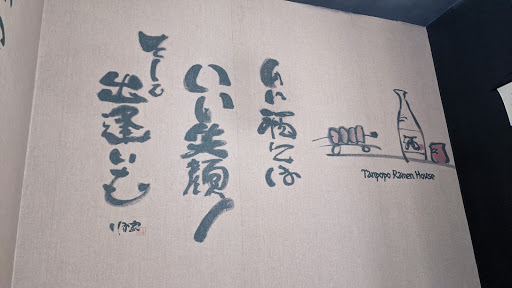 酒には
いい笑顔
そして
出逢いも
酒
Tanpopo Ramen House